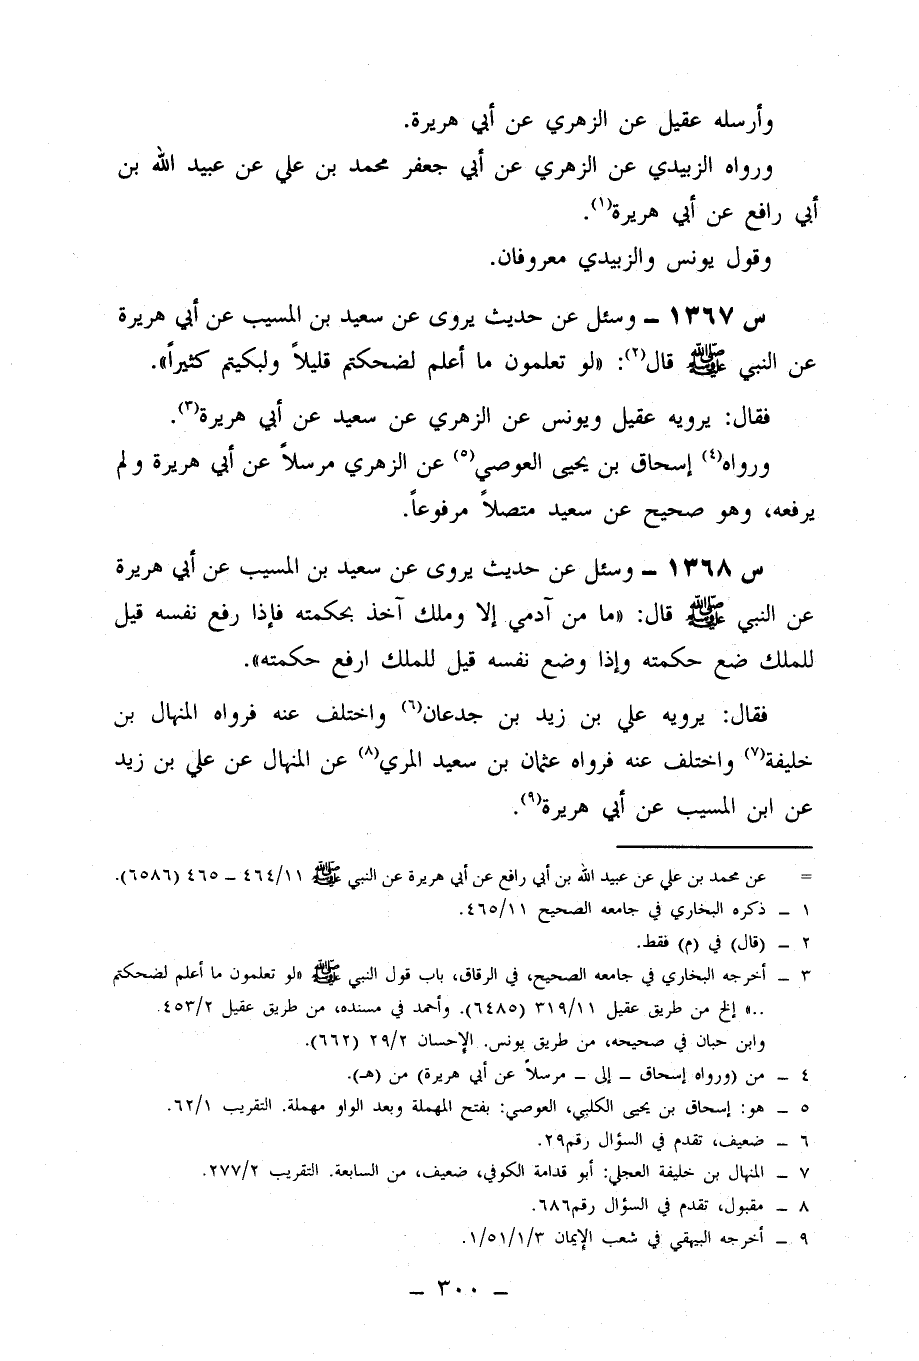 وأرسله عقيل عن الزهري عن أبي هريرة.
ورواه الزبيدي عن الزهري عن أبي جعفر محمد بن علي عن عبيد الله بن
أبي رافع عن أبي هريرة(١).
وقول يونس والزبيدي معروفان.
س ١٣٦٧ ـ وسئل عن حديث يروى عن سعيد بن المسيب عن أبي هريرة
عن النبي ﷺ قال(٢): «لو تعلمون ما أعلم لضحكتم قليلاً ولبكيتم كثيراً».
فقال: يرويه عقيل ويونس عن الزهري عن سعيد عن أبي هريرة(٣).
ورواه(٤) إسحاق بن يحيى العوصي(٥) عن الزهري مرسلاً عن أبي هريرة ولم
يرفعه، وهو صحيح عن سعيد متصلاً مرفوعاً.
س ١٣٦٨ ـ وسئل عن حديث يروى عن سعيد بن المسيب عن أبي هريرة
عن النبي ﷺ قال: «ما من آدمي إلا وملك آخذ بحكمته فإذا رفع نفسه قيل
للملك ضع حكمته وإذا وضع نفسه قيل للملك ارفع حكمته».
فقال: يرويه علي بن زيد بن جدعان(٦) واختلف عنه فرواه المنهال بن
خليفة(٧) واختلف عنه فرواه عثمان بن سعيد المري(٨) عن المنهال عن علي بن زيد
عن ابن المسيب عن أبي هريرة(٩).
= عن محمد بن علي عن عبيد الله بن أبي رافع عن أبي هريرة عن النبي ﷺ ٤٦٤/١١ ـ ٤٦٥ (٦٥٨٦).
١ ـ ذكره البخاري في جامعه الصحيح ٤٦٥/١١.
٢ ـ (قال) في (م) فقط.
٣ ـ أخرجه البخاري في جامعه الصحيح، في الرقاق، باب قول النبي ﷺ «لو تعلمون ما أعلم لضحكتم
..» إلخ من طريق عقيل ٣١٩/١١ (٦٤٨٥). وأحمد في مسنده، من طريق عقيل ٤٥٣/٢.
وابن حبان في صحيحه، من طريق يونس. الإحسان ٢٩/٢ (٦٦٢).
٤ ـ من (ورواه إسحاق ـ إلى ـ مرسلاً عن أبي هريرة) من (هـ).
٥ ـ هو: إسحاق بن يحيى الكلبي، العوصي: بفتح المهملة وبعد الواو مهملة. التقريب ٦٢/١.
٦ ـ ضعيف، تقدم في السؤال رقم٢٩.
٧ ـ المنهال بن خليفة العجلي: أبو قدامة الكوفي، ضعيف، من السابعة. التقريب ٢٧٧/٢.
٨ ـ مقبول، تقدم في السؤال رقم٦٨٦.
٩ ـ أخرجه البيهقي في شعب الإيمان ١/٥١/١/٣.
ـ ٣٠٠ ـ